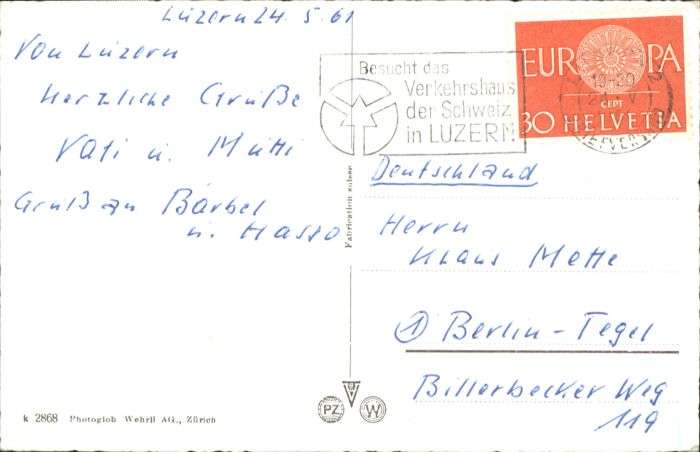 Luzern 24. 5. 61
Von Luzern
Herzliche Grüße
Vati u. Mutti
Gruß an Bärbel
u. Hasso
Besucht das
Verkehrshaus
der Schweiz
in LUZERN
EUROPA
CEPT
30 HELVETIA
Fabrication suisse
Deutschland
Herrn
Klaus Mette
① Berlin-Tegel
Billerbecker Weg
119
k 2868 Photoglob Wehrli AG., Zürich
PZ
W